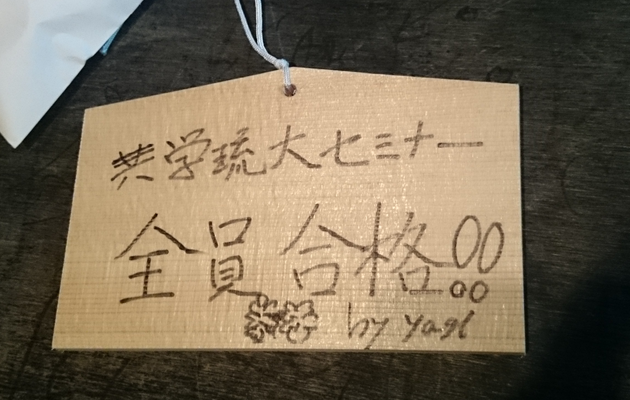 共学琉大セミナー
全員合格!!
by yagi